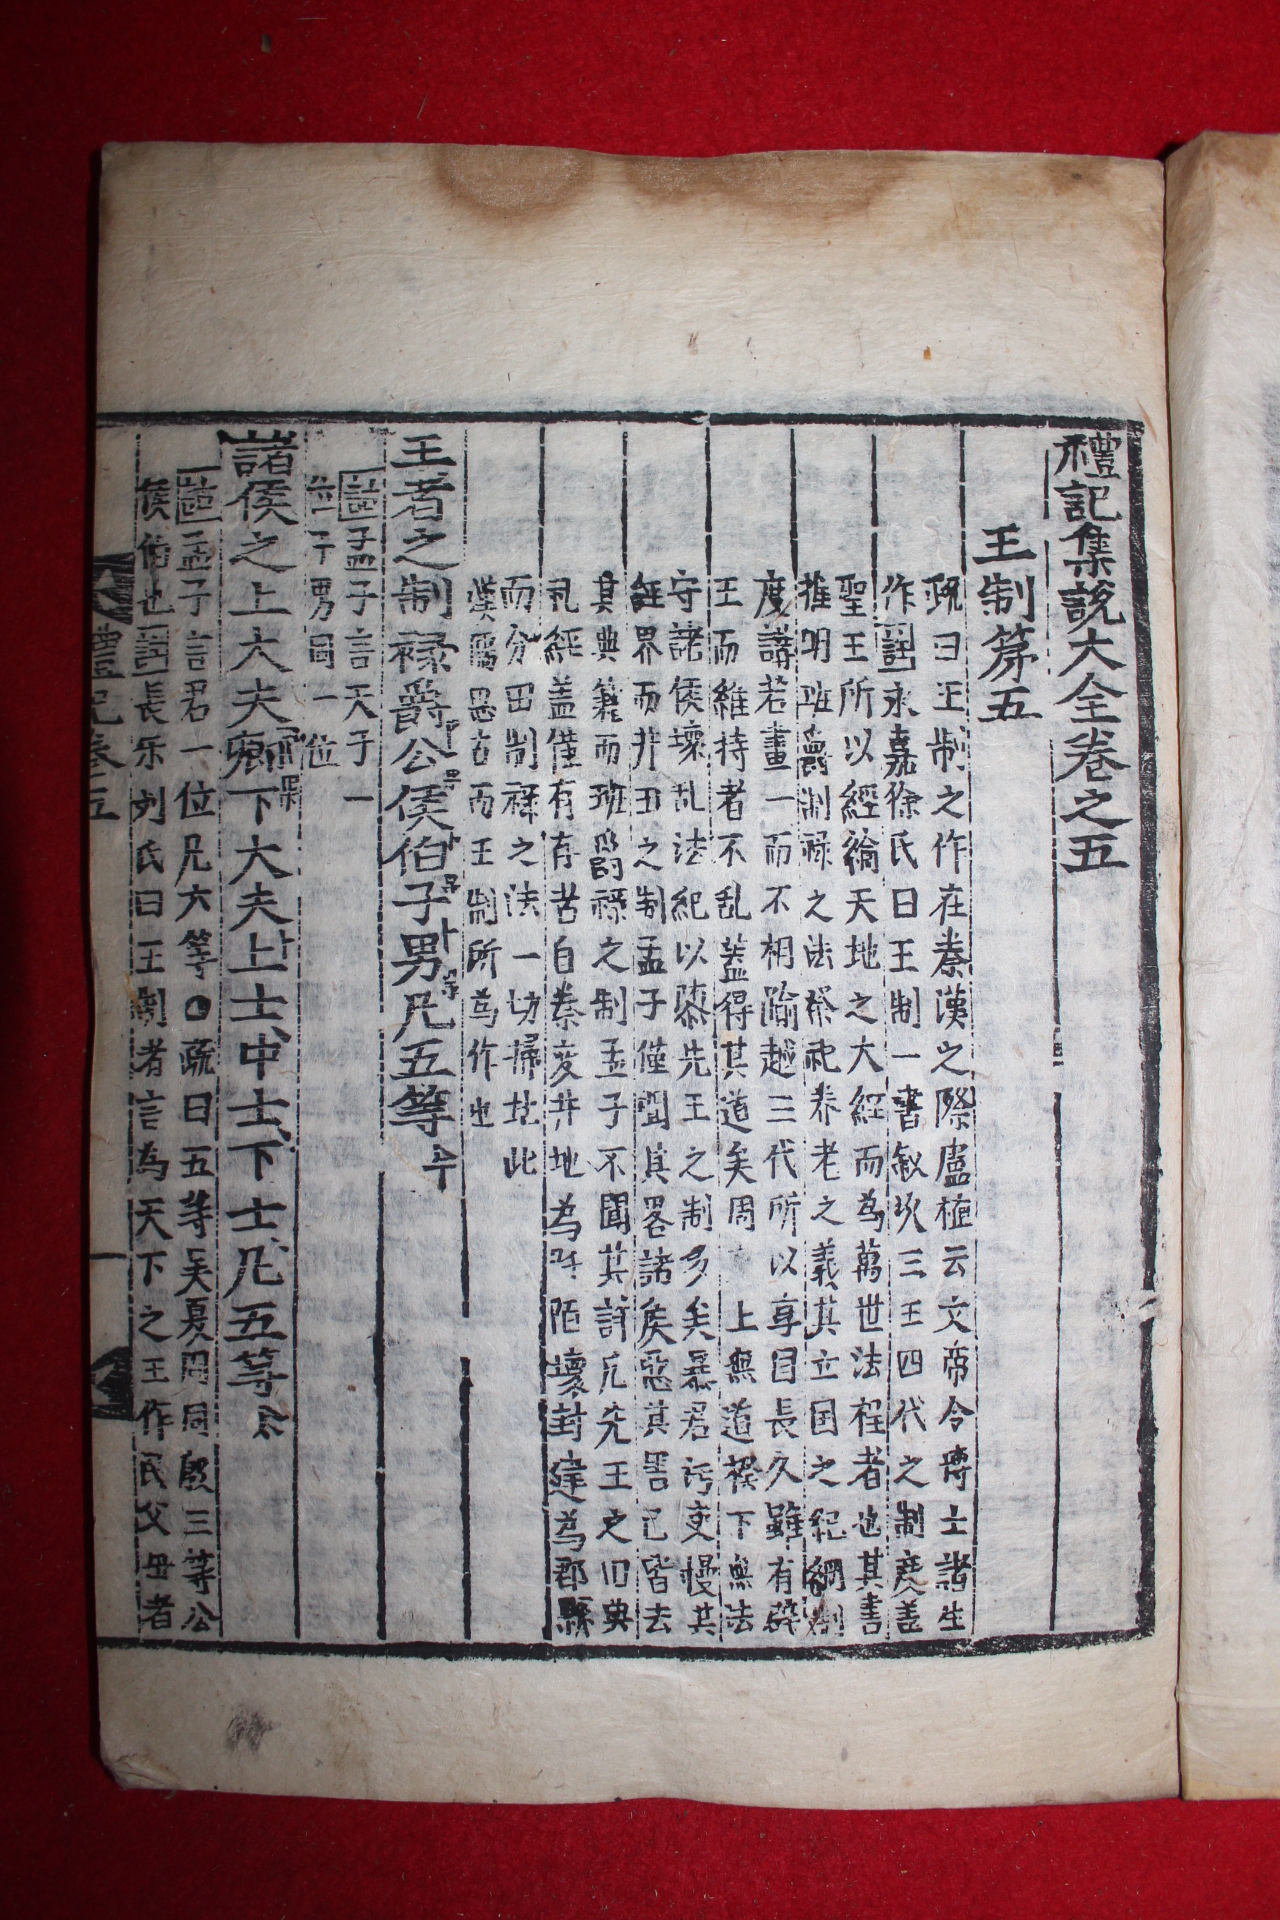 禮記集說大全卷之五
王制第五
疏曰王制之作在秦漢之際盧植云文帝令博士諸生
作註永嘉徐氏曰王制一書叙次三王四代之制度蓋
聖王所以經綸天地之大經而為萬世法程者也其書
推明班爵制祿之法祭祀養老之義其立國之紀綱制
度講若畫一而不相踰越三代所以享國長久雖有辟
王而維持者不乱蓋得其道矣周 上無道揆下無法
守諸侯壞乱法紀以隳先王之制多矣暴君污吏慢其
經界而井田之制孟子僅聞其畧諸侯惡其害己皆去
其典籍而班爵祿之制孟子不聞其詳凡先王之旧典
礼經蓋僅有存者自秦変井地為阡陌壞封建為郡縣
而分田制祿之法一切掃地此
漢儒思古而王制所為作也
王者之制祿爵公侯伯子男凡五等
註孟子言天子一
位子男同一位
諸侯之上大夫卿下大夫上士中士下士凡五等
註孟子言君一位凡六等○疏曰五等虞夏周同殷三等公
侯伯也註長乐刘氏曰王制者言為天下之王作民父母者
禮記卷五